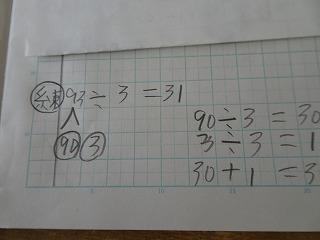 練 93÷3=31
90 3
90÷3=30
3÷3=1
30+1=3